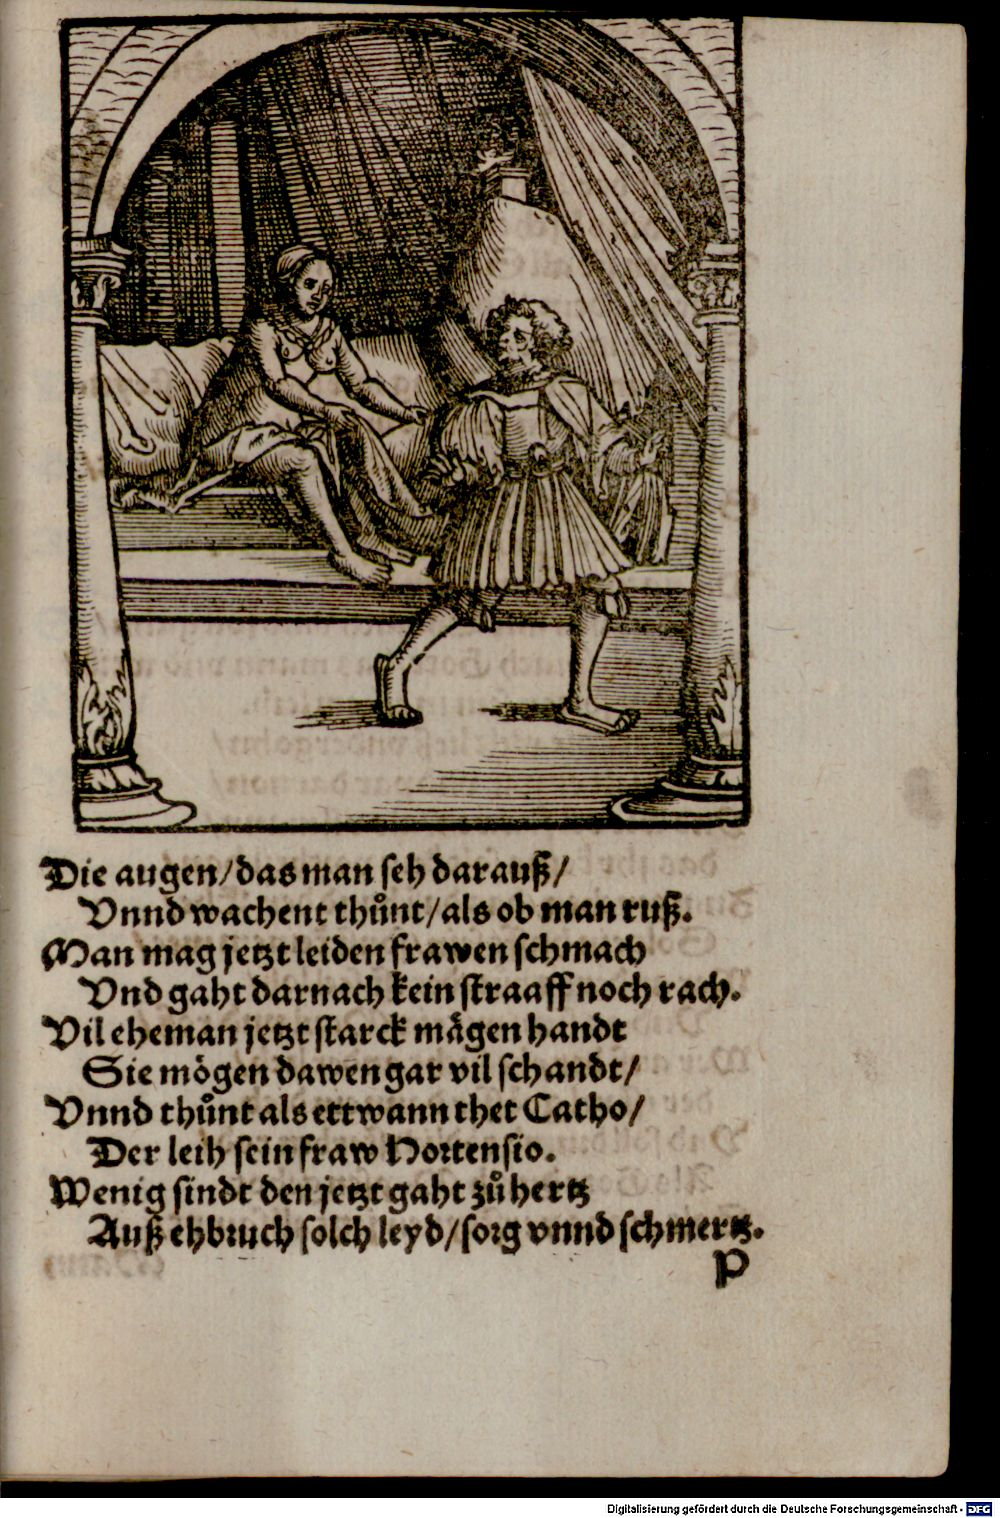 Die augen/das man seh darauß/
Vnnd wachent thůnt/als ob man ruß.
Man mag jetzt leiden frawen schmach
Vnd gaht darnach kein straaff noch rach.
Vil eheman jetzt starck mägen handt
Sie mögen dawen gar vil schandt/
Vnnd thůnt als ettwann thet Catho/
Der leih sein fraw Hortensio.
Wenig sindt den jetzt gaht zů hertz
Auß ehbruch solch leyd/sorg vnnd schmertz.
P
Digitalisierung gefördert durch die Deutsche Forschungsgemeinschaft - DFG